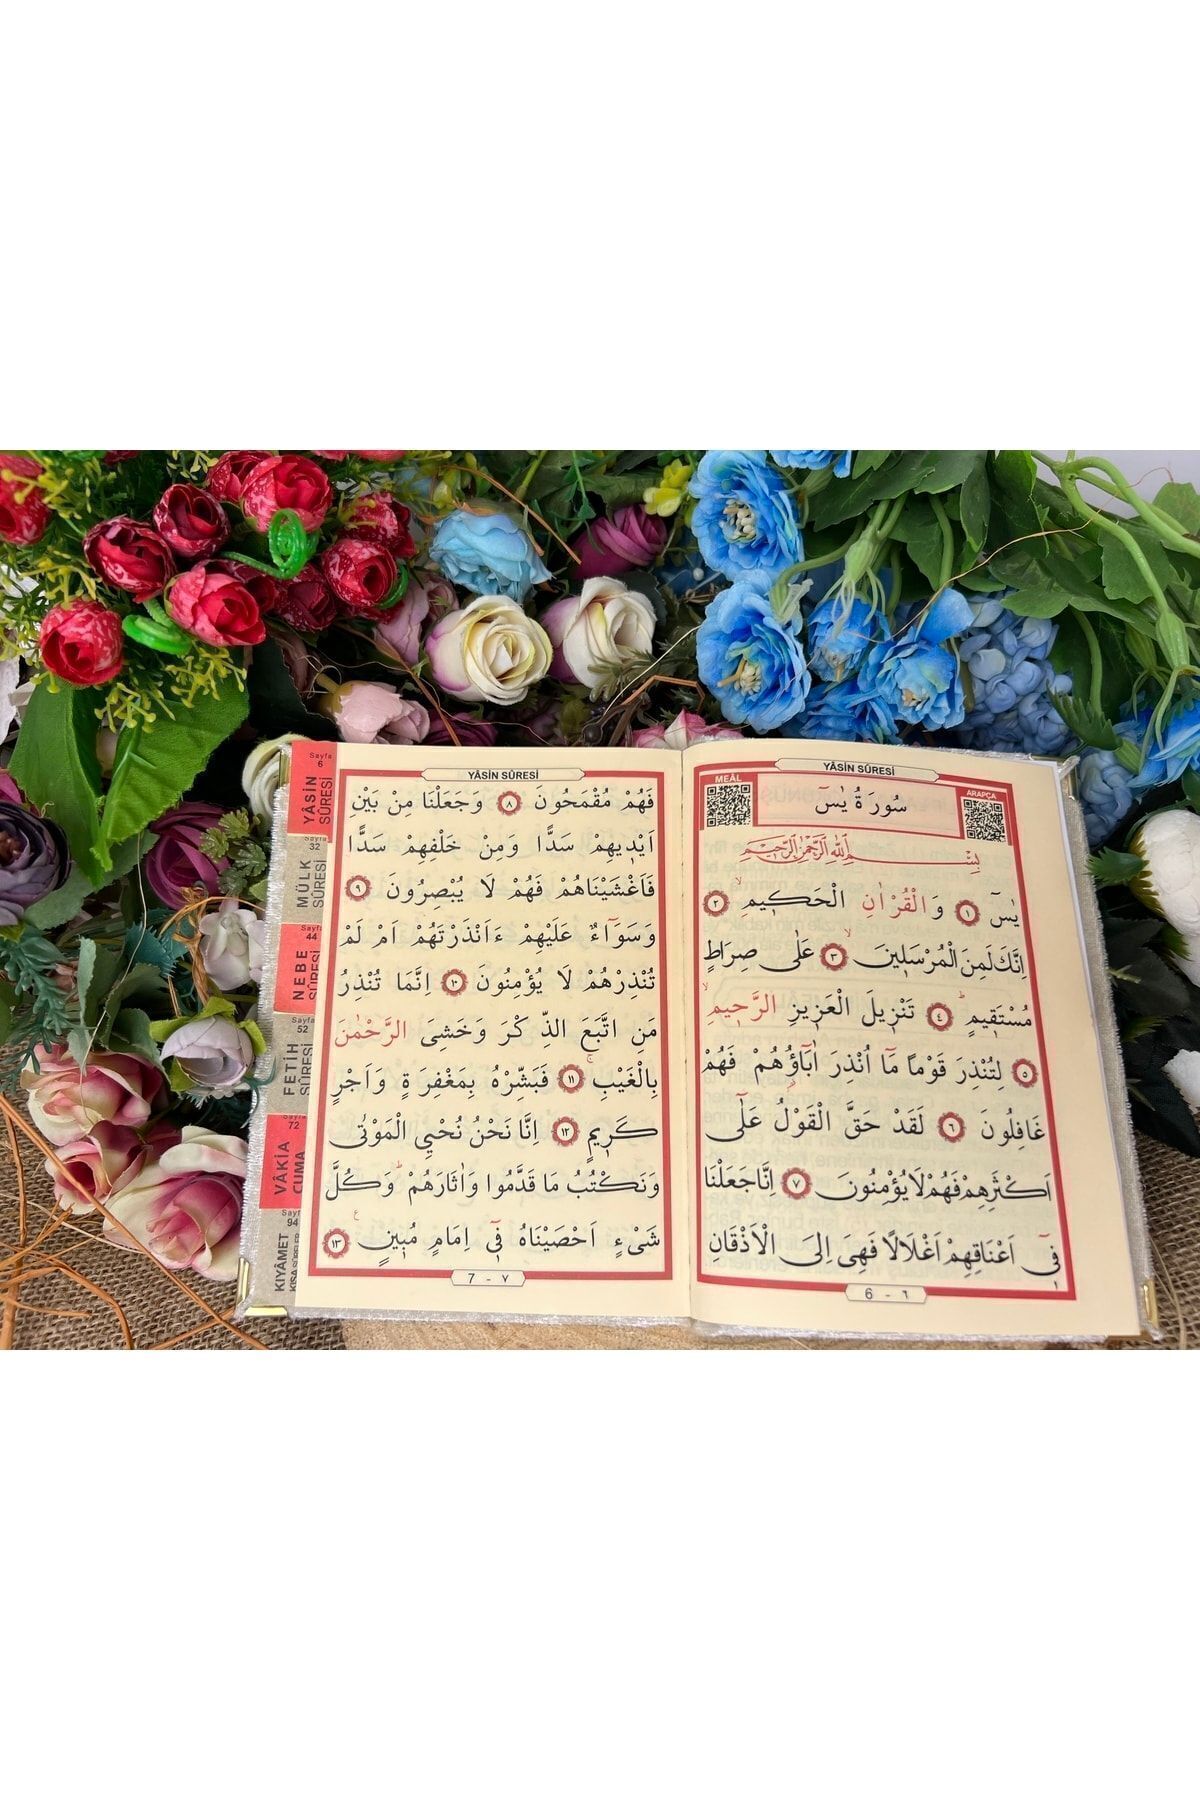 YÂSİN SÛRESİ
MEÂL
سُورَةُ يٰسٓ
ARAPÇA
بِسْمِ اللّٰهِ الرَّحْمٰنِ الرَّحِيمِ
يٰسٓ ﴿١﴾ وَالْقُرْاٰنِ الْحَكٖيمِۙ ﴿٢﴾
اِنَّكَ لَمِنَ الْمُرْسَلٖينَۙ ﴿٣﴾ عَلٰى صِرَاطٍ
مُسْتَقٖيمٍؕ ﴿٤﴾ تَنْزٖيلَ الْعَزٖيزِ الرَّحٖيمِۙ
﴿٥﴾ لِتُنْذِرَ قَوْمًا مَٓا اُنْذِرَ اٰبَٓاؤُ۬هُمْ فَهُمْ
غَافِلُونَ ﴿٦﴾ لَقَدْ حَقَّ الْقَوْلُ عَلٰٓى
اَكْثَرِهِمْ فَهُمْ لَا يُؤْمِنُونَ ﴿٧﴾ اِنَّا جَعَلْنَا
فٖٓى اَعْنَاقِهِمْ اَغْلَالًا فَهِىَ اِلَى الْاَذْقَانِ
6 - ٦
YÂSİN SÛRESİ
فَهُمْ مُقْمَحُونَ ﴿٨﴾ وَجَعَلْنَا مِنْ بَيْنِ
اَيْدٖيهِمْ سَدًّا وَمِنْ خَلْفِهِمْ سَدًّا
فَاَغْشَيْنَاهُمْ فَهُمْ لَا يُبْصِرُونَ ﴿٩﴾
وَسَوَٓاءٌ عَلَيْهِمْ ءَاَنْذَرْتَهُمْ اَمْ لَمْ
تُنْذِرْهُمْ لَا يُؤْمِنُونَ ﴿١٠﴾ اِنَّمَا تُنْذِرُ
مَنِ اتَّبَعَ الذِّكْرَ وَخَشِىَ الرَّحْمٰنَ
بِالْغَيْبِۚ ﴿١١﴾ فَبَشِّرْهُ بِمَغْفِرَةٍ وَاَجْرٍ
كَرٖيمٍ ﴿١٢﴾ اِنَّا نَحْنُ نُحْيِي الْمَوْتٰى
وَنَكْتُبُ مَا قَدَّمُوا وَاٰثَارَهُمْؕ وَكُلَّ
شَىْءٍ اَحْصَيْنَاهُ فٖٓى اِمَامٍ مُبٖينٍ ﴿١٣﴾
7 - ٧
Sayfa
6
YÂSİN
SÛRESİ
Sayfa
32
MÜLK
SÛRESİ
44
NEBE
SÛRESİ
Sayfa
52
FETİH
SÛRESİ
Sayfa
72
VÂKİA
CUMA
Sayfa
94
KIYÂMET
KISA SÛRELER